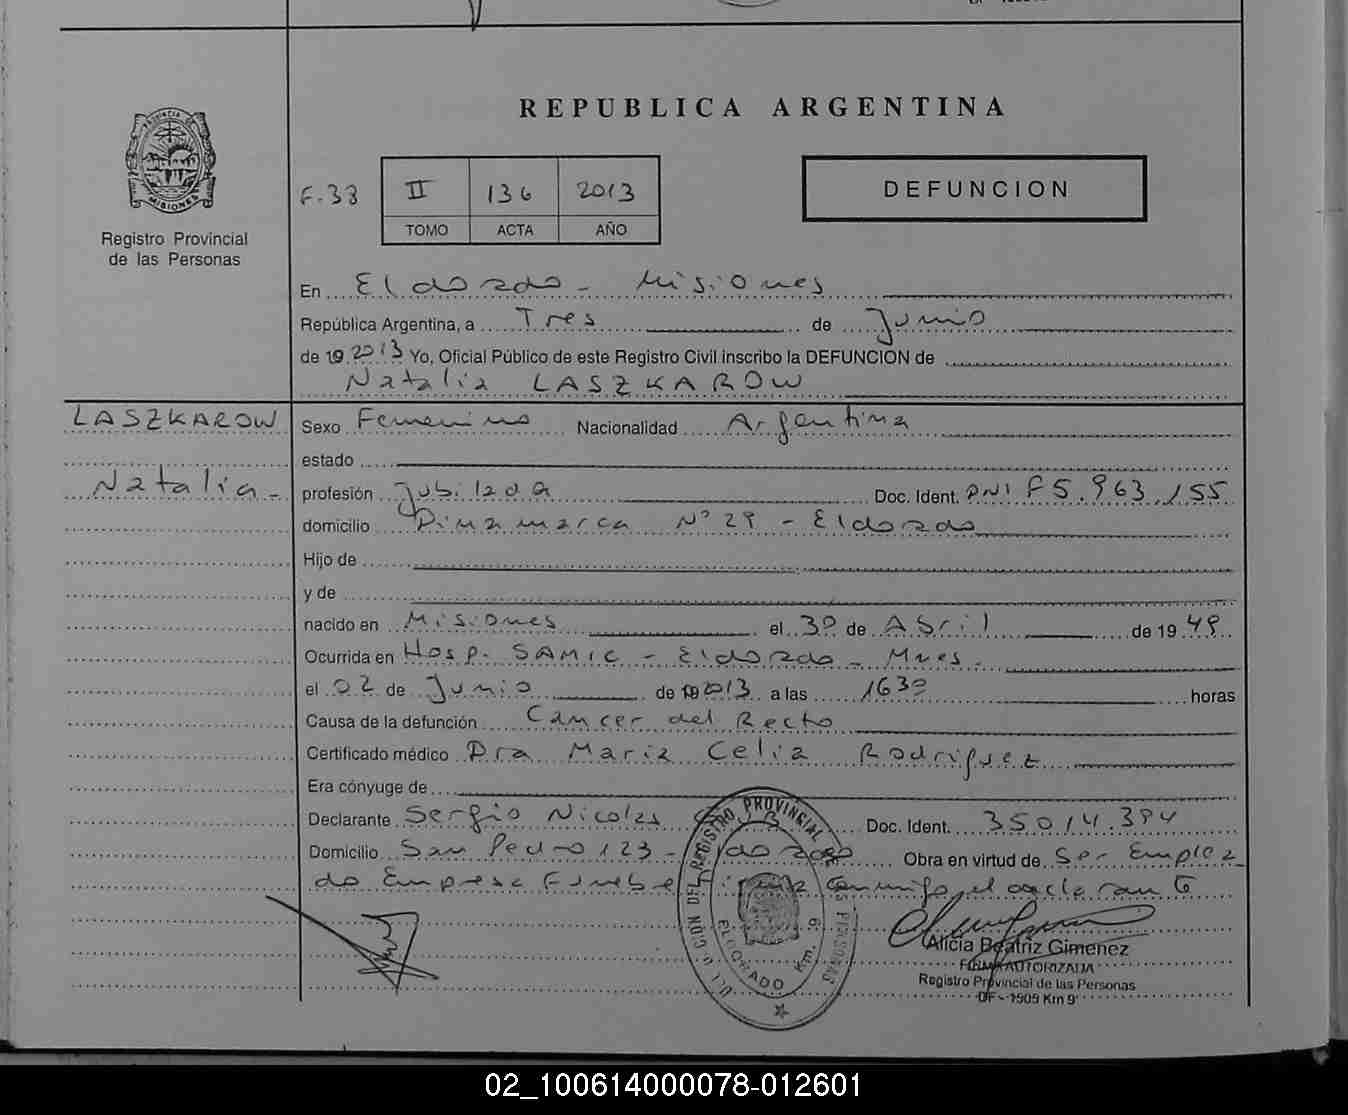 REPUBLICA ARGENTINA
PROVINCIA DE
MISIONES
Registro Provincial
de las Personas
F.33
II 136 2013
TOMO ACTA AÑO
DEFUNCION
En Eldorado - Misiones
República Argentina, a Tres de Junio
de 19 2013 Yo, Oficial Público de este Registro Civil inscribo la DEFUNCION de
Natalia LASZKAROW
LASZKAROW
Natalia -
Sexo Femenino Nacionalidad Argentina
estado
profesión Jubilada Doc. Ident. DNI F5.963.155
domicilio Dinamarca Nº 29 - Eldorado
Hijo de
y de
nacido en Misiones el 30 de Abril de 19 49
Ocurrida en Hosp. SAMIC - Eldorado - Mnes.
el 02 de Junio de 19 2013 a las 1630 horas
Causa de la defunción Cancer del Recto
Certificado médico Dra Maria Celia Rodriguez
Era cónyuge de
Declarante Sergio Nicolas Doc. Ident. 35014.394
Domicilio San Pedro 123 - Eldorado Obra en virtud de Ser Emplea
do Empresa Funebre conmigo el declarante
REGISTRO PROVINCIAL DE LAS PERSONAS
ELDORADO Km. 9
Alicia Beatriz Gimenez
FIRMA AUTORIZADA
Registro Provincial de las Personas
OF - 1909 Km 9
02_100614000078-012601